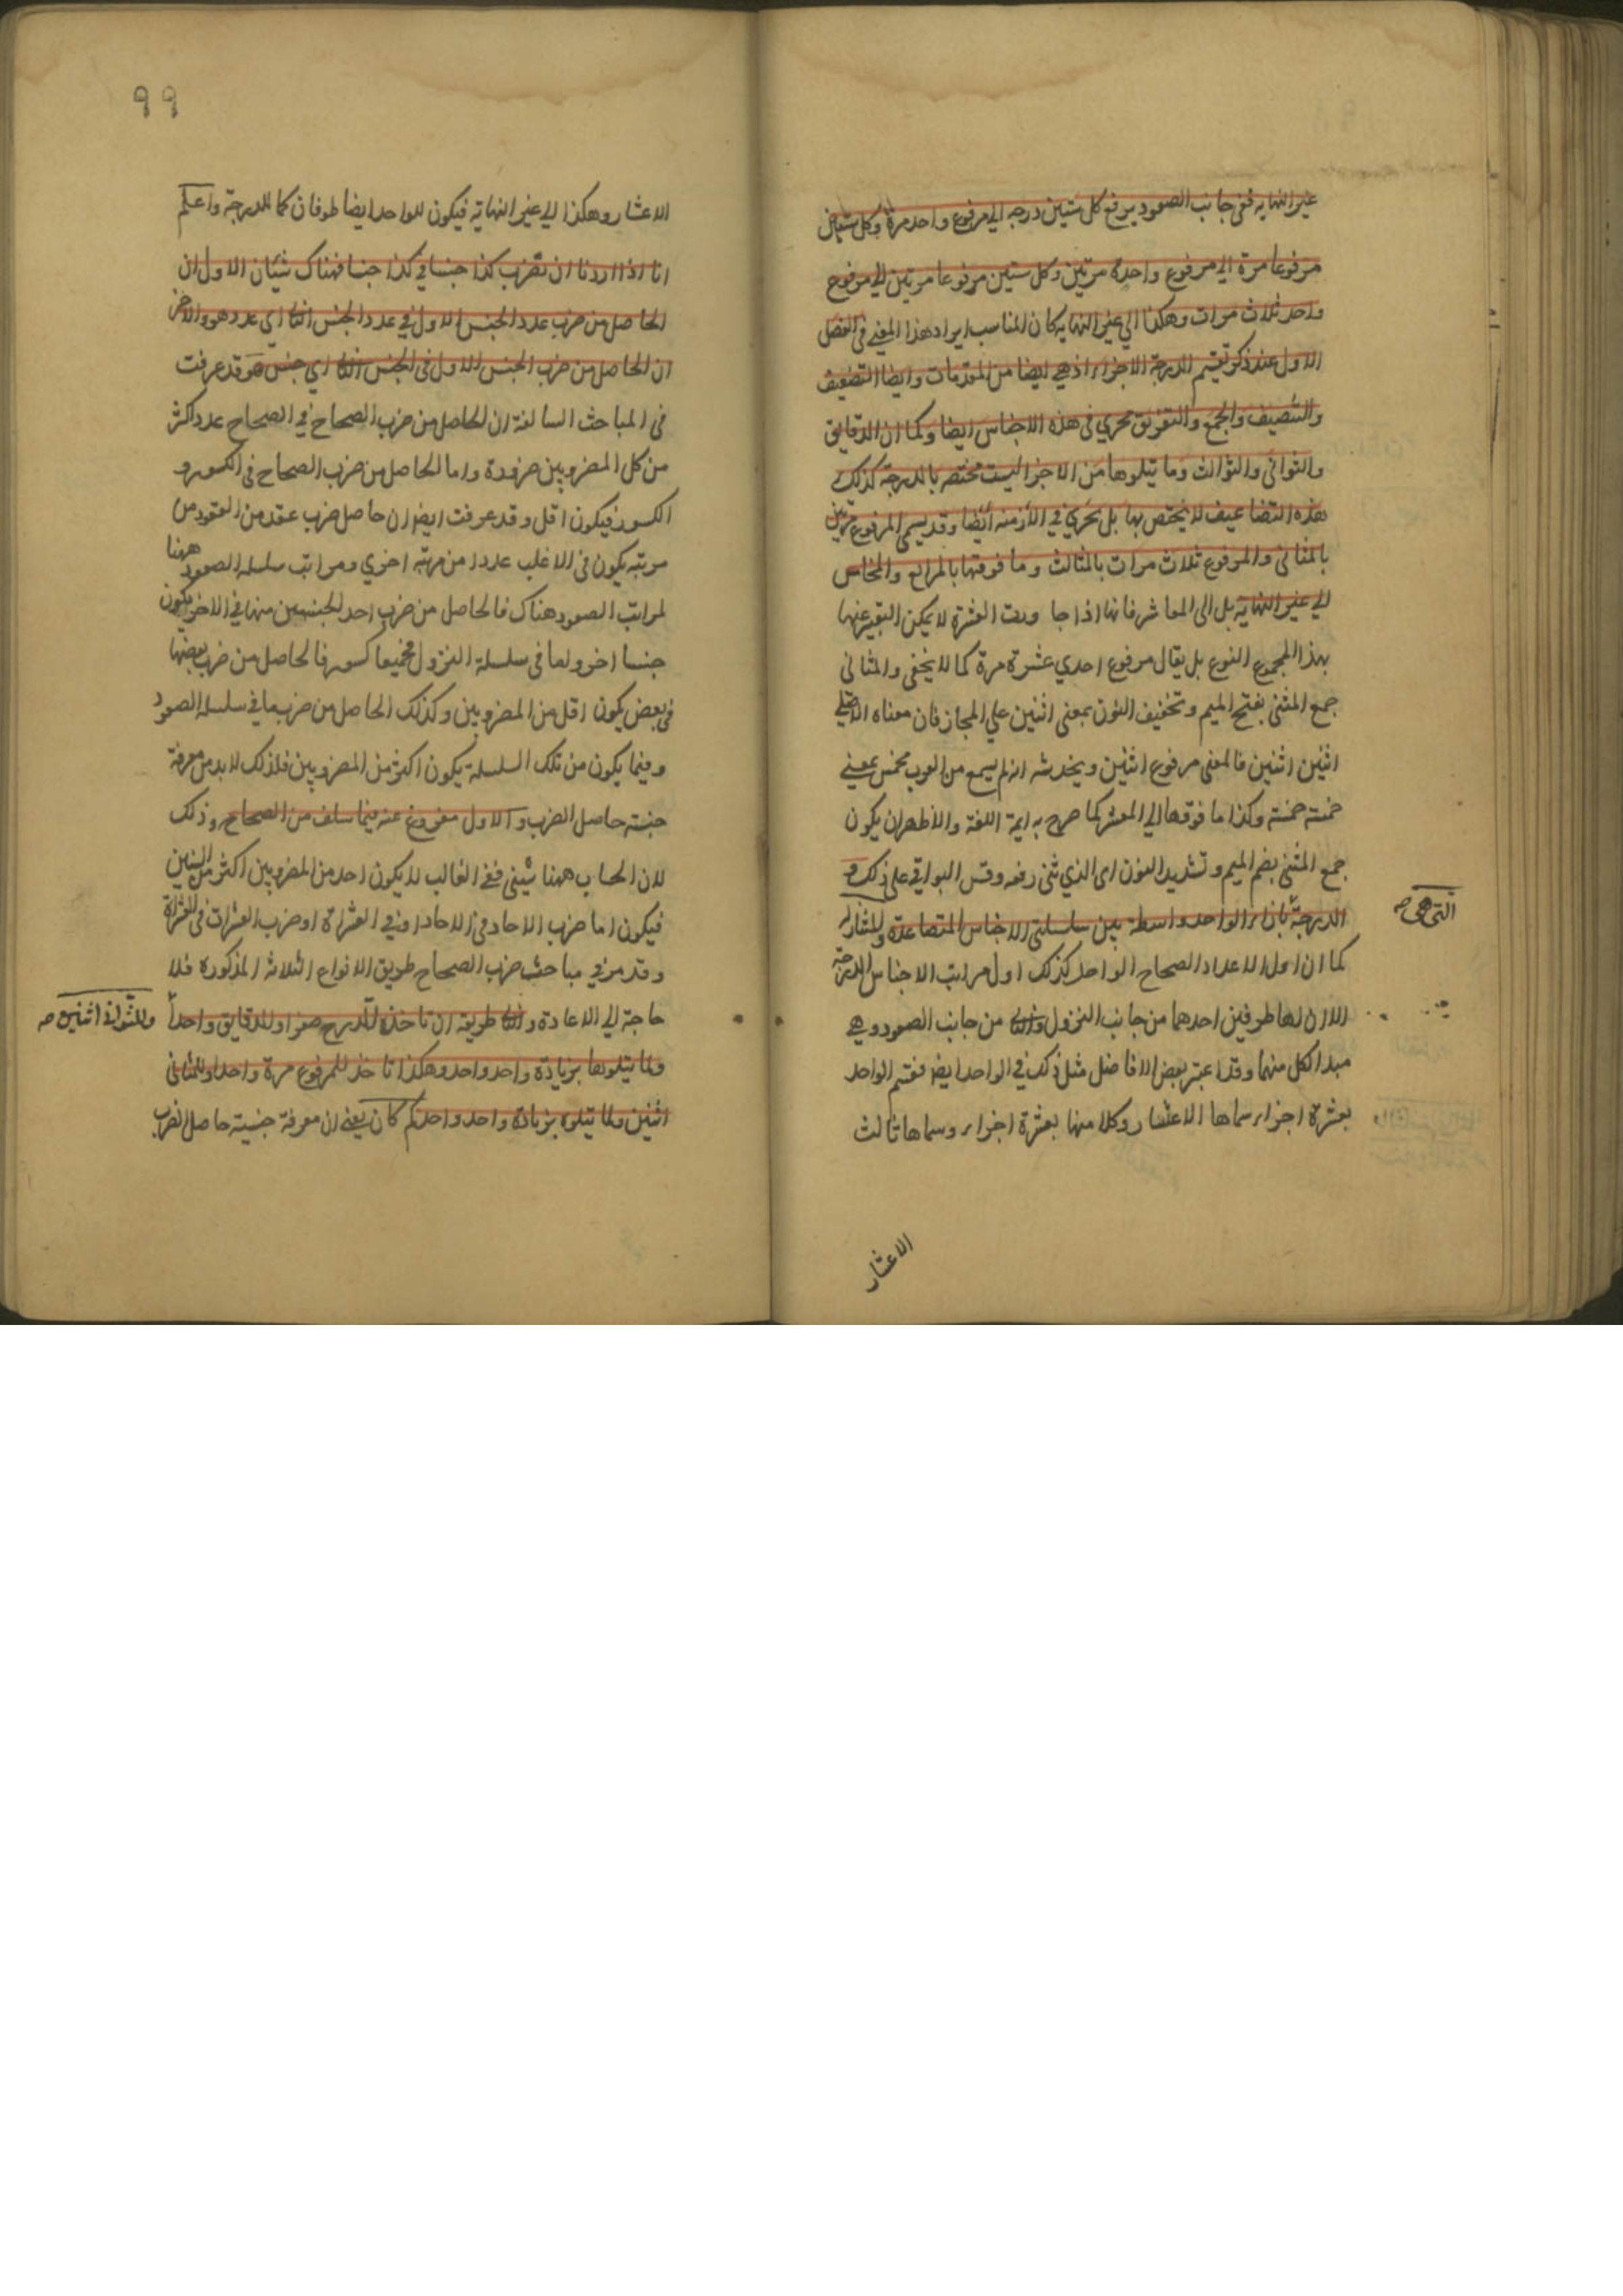 غير النهايه ففي جانب الصعود يرفع كل ستين درجه الي مرفوع واحد مرة وكل ستين
مرفوعا مرة الي مرفوع واحدة مرتين وكل ستين مرفوعا مرتين الي مرفوع
واحد ثلاث مرات وهكذا الي غير النهايه كان المناسب ايراد هذا المعني في الفصل
الاول عند ذكر تقسيم الدرجة الاجزاء اذ هي ايضا من المقدمات وايضا التضعيف
والتنصيف والجمع والتفريق تجري في هذه الاجناس ايضا وكما ان الدقايق
والثواني والثوالث وما يتلوها من الاجزا ليست مختصه بالدرجة كذلك
هذه التضاعيف لا يختص بها بل تجري في الازمنه ايضا وقد يسمي المرفوع مرتين
بالمثاني والمرفوع ثلاث مرات بالمثالث وما فوقها بالمرابع والمخامس
الي غير النهايه بل الي المعاشر فانها اذا جاوزت العشرة لا يمكن التعبير عنها
بهذا المجموع النوع بل يقال مرفوع احدي عشرة مرة كما لا يخفي والمثاني
جمع المثني بفتح الميم وتخفيف النون بمعني اثنين علي المجاز فان معناه الاصلي
اثنين اثنين فالمعني مرفوع اثنين ويخدشه انه لم يسمع من العرب مخمس بمعني
خمسة خمسة وكذا ما فوقها الي المعشر كما صرح به ايمة اللغة والاظهر ان يكون
جمع المثني بضم الميم وتشديد النون اي الذي ثني رفعه وقس البواقي علي ذلك و
الدرجة بازاء الواحد واسطة بين سلسلتي الاجناس المتصاعدة والمتنازلة
التي هي صه
كما ان اول الاعداد الصحاح الواحد كذلك اول مراتب الاجناس الدرجة
الا ان لها طرفين احدهما من جانب النزول والثاني من جانب الصعود وهي
مبدا لكل منهما وقد اعتبر بعض الافاضل مثل ذلك في الواحد ايضا فقسم الواحد
بعشرة اجزاء سماها الاعشار وكلا منها بعشرة اجزاء وسماها ثالث
الاعشار
٩٩
الاعشار وهكذا الي غير النهاية فيكون للواحد ايضا طرفان كما للدرجة واعلم
انا اذا اردنا ان نضرب كذا جنسا في كذا جنسا فهناك شيئان الاول ان
الحاصل من ضرب عدد الجنس الاول في عدد الجنس الثاني اي عدد هو والاخر
ان الحاصل من ضرب الجنس الاول في الجنس الثاني اي جنس هو وقد عرفت
في المباحث السالفة ان الحاصل من ضرب الصحاح في الصحاح عدد اكثر
من كل المضروبين ضرورة واما الحاصل من ضرب الصحاح في الكسور و
الكسور فيكون اقل وقد عرفت ايضا ان حاصل ضرب عقد من العقود من
مرتبه يكون في الاغلب عددا من مرتبة اخري ومراتب سلسله الصعود ههنا
لمراتب الصعود هناك فالحاصل من ضرب احد الجنسين منها في الاخر يكون
جنسا اخر واما في سلسلة النزول فجميعها كسور فالحاصل من ضرب بعضها
في بعض يكون اقل من المضروبين وكذلك الحاصل من ضرب ما في سلسله الصعود
وفيما يكون من تلك السلسلة يكون اكثر من المضروبين فلذلك لا بد من معرفة
جنسيه حاصل الضرب والاول مفروغ عنه فيما سلف من الصحاح وذلك
لان الحساب ههنا ستيني ففي الغالب لا يكون احد من المضروبين اكثر من الستين
فيكون اما ضرب الاحاد في الاحاد او في العشرات او ضرب العشرات في العشرات
وقد مر في مباحث ضرب الصحاح طريق الانواع الثلاثه المذكورة فلا
حاجة الي الاعادة والثاني طريقه ان تاخذ للدرج صفرا وللدقايق واحدا
وللثواني اثنين صه
ولما يتلوها بزيادة واحد واحد وهكذا تاخذ للمرفوع مرة واحدا وللمثاني
اثنين ولما يتلوه بزيادة واحد واحد كم كان يعني ان معرفة جنسية حاصل الضرب